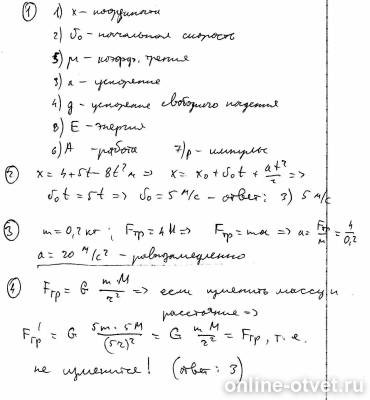 ① 1) x - координата
2) υ₀ - начальная скорость
5) μ - коэфф. трения
3) a - ускорение
4) g - ускорение свободного падения
8) E - энергия
6) A - работа 7) p - импульс
② x = 4 + 5t - 8t² м => x = x₀ + υ₀t + at²/2 =>
υ₀t = 5t => υ₀ = 5 м/с - ответ: 3) 5 м/с
③ m = 0,2 кг; Fтр = 4 Н => Fтр = ma => a = Fтр/m = 4/0,2
a = 20 м/с² - равнозамедленно
④ Fгр = G m·M/r² => если изменить массу и
расстояние =>
Fгр' = G 5m·5M/(5r)² = G m·M/r² = Fгр, т.е.
не изменится! (ответ: 3)
online-otvet.ru